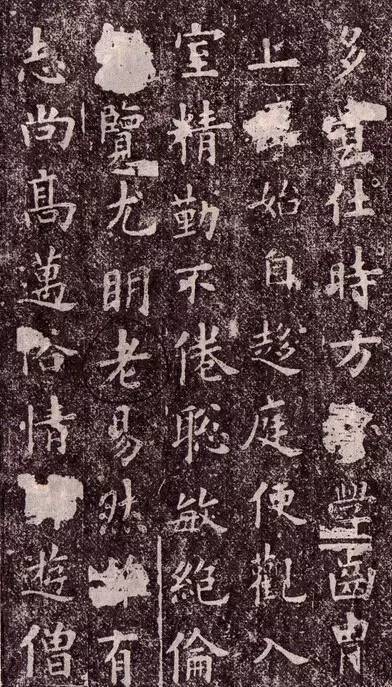 多仕時方學齒胄
上始自趍庭便觀入
室精勤不倦聡敏絕倫
覽尤眀老易然有
志尚髙邁俗情遊僧